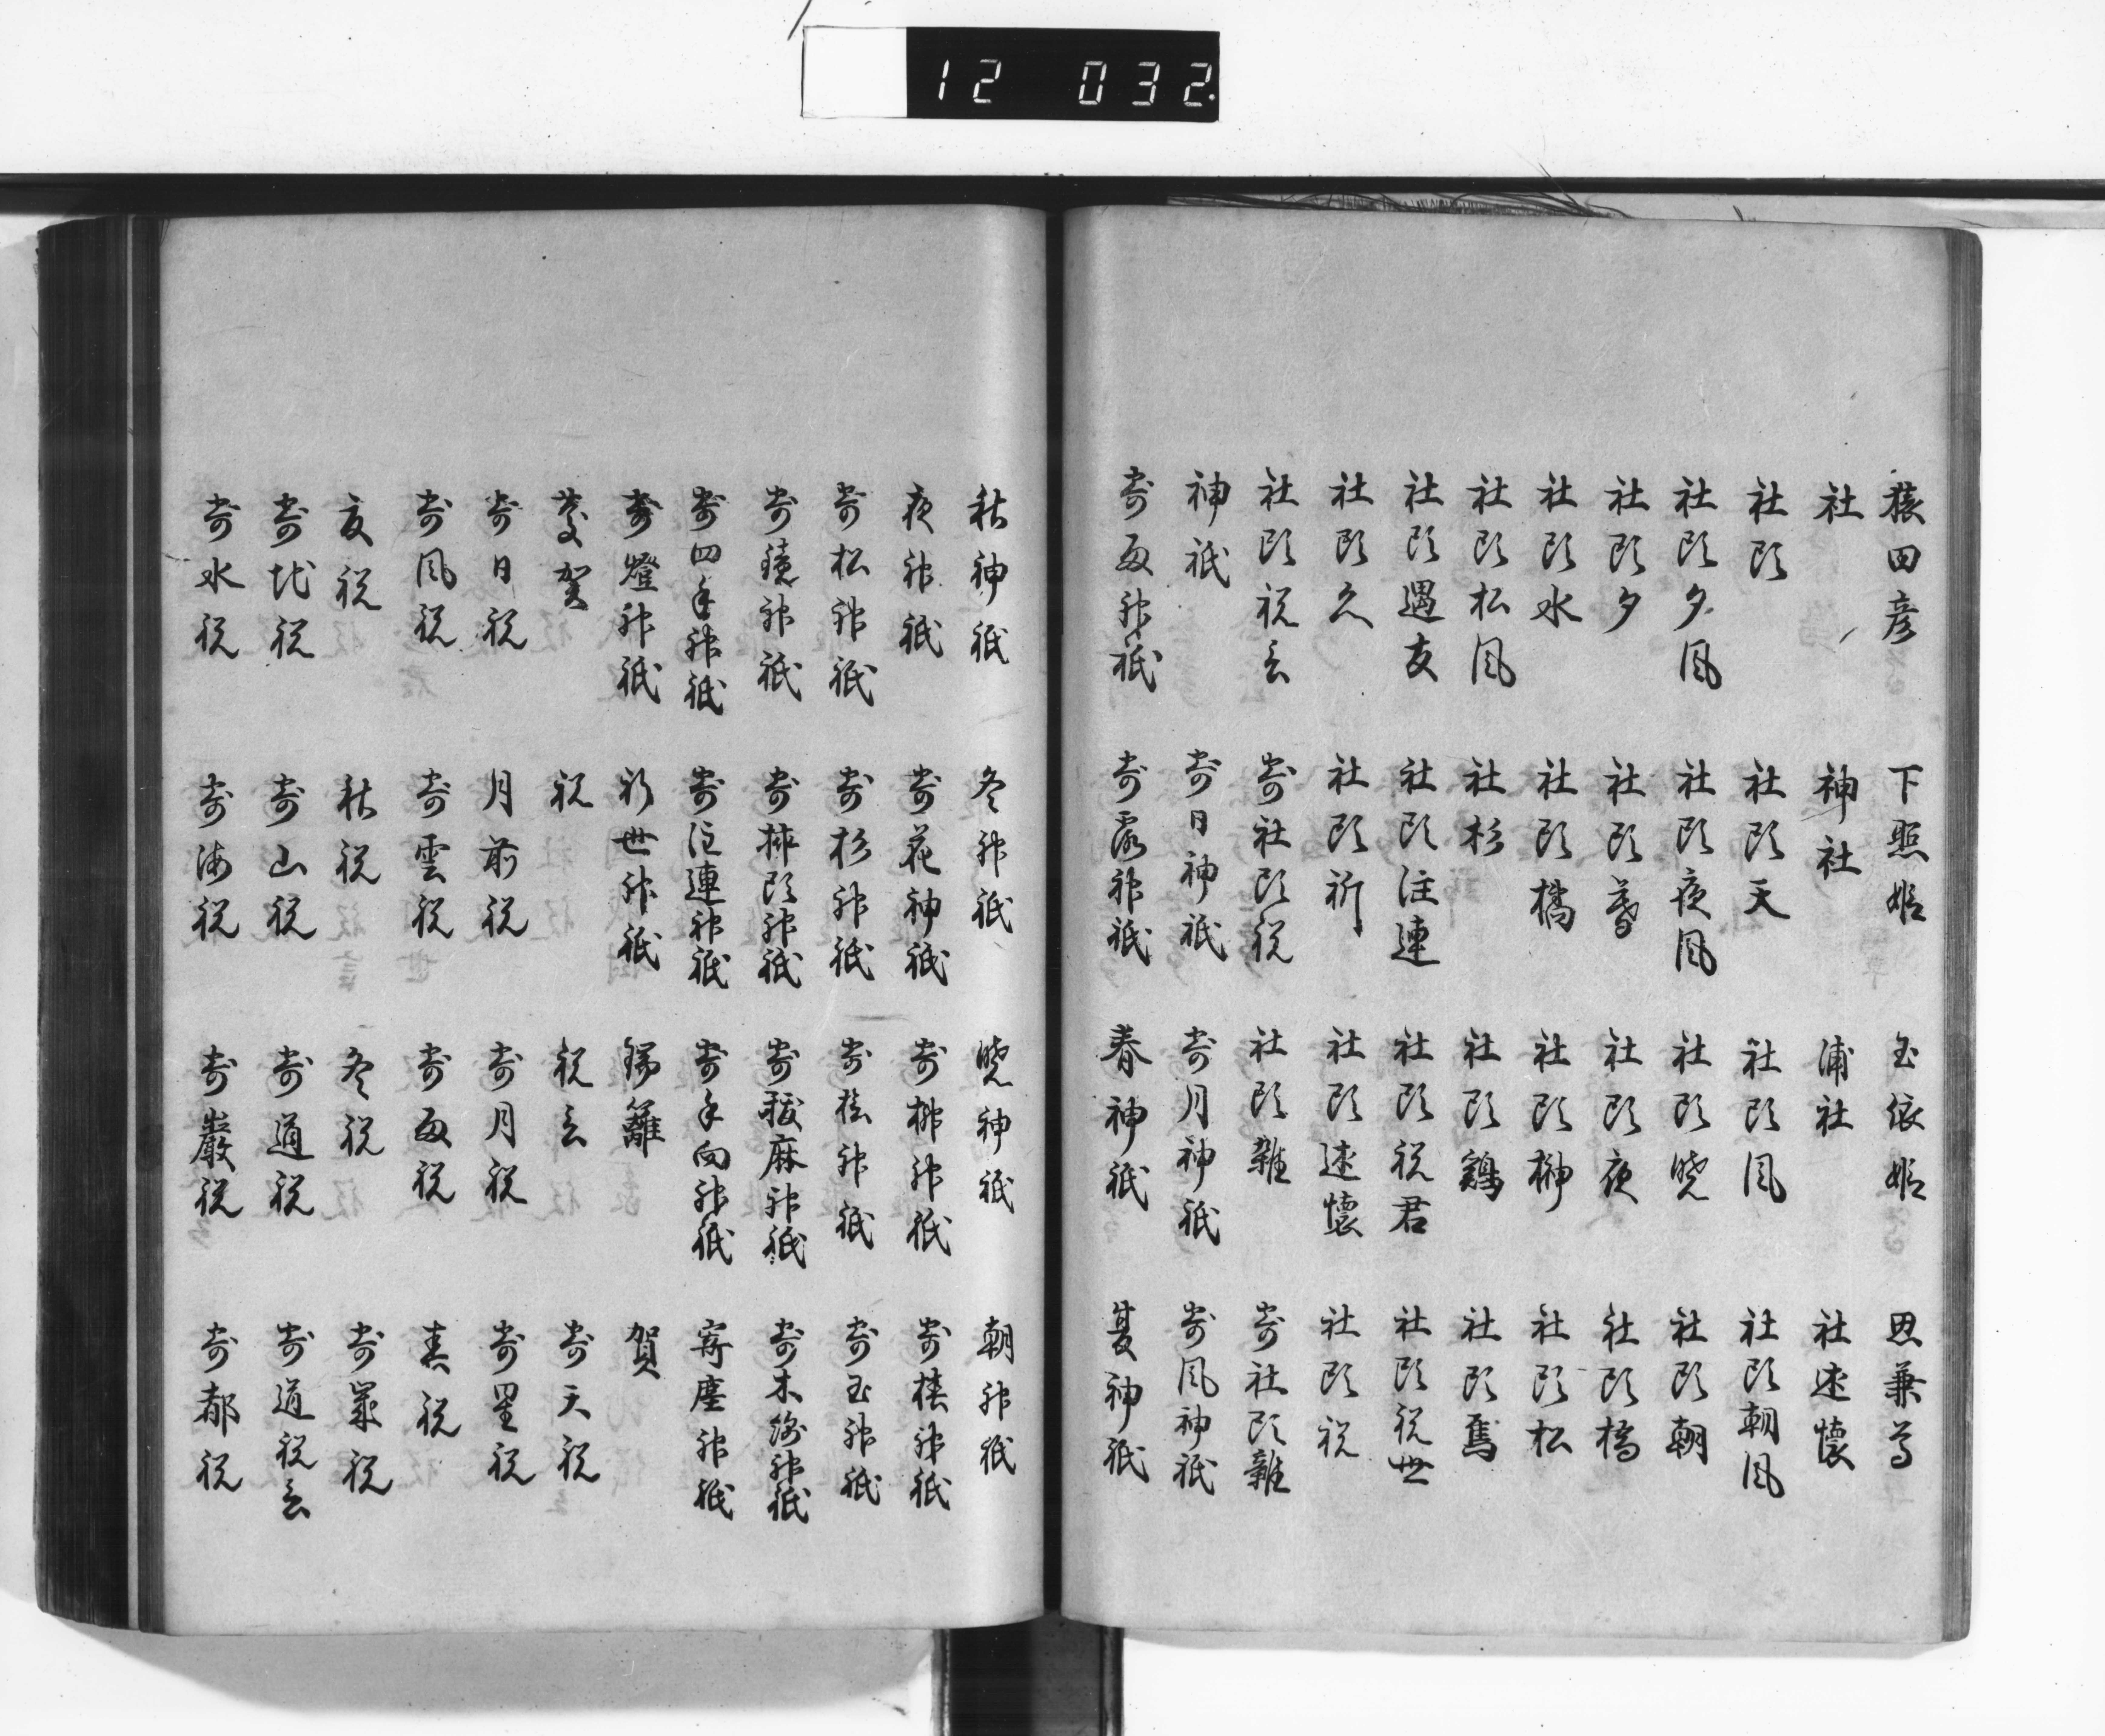 12 032
猿田彦 下照姫 玉依姫 思兼尊
社 神社 浦社 社述懐
社頭 社頭天 社頭風 社頭朝風
社頭夕風 社頭夜風 社頭暁 社頭朝
社頭夕 社頭暮 社頭夜 社頭橋
社頭水 社頭橋 社頭榊 社頭松
社頭松風 社杉 社頭鶏 社頭馬
社頭遇友 社頭注連 社頭祝君 社頭祝世
社頭久 社頭祈 社頭述懐 社頭祝
社頭祝言 寄社頭祝 社頭雑 寄社頭雑
神祇 寄日神祇 寄月神祇 寄風神祇
寄雨神祇 寄露神祇 春神祇 夏神祇
秋神祇 冬神祇 暁神祇 朝神祇
夜神祇 寄花神祇 寄榊神祇 寄椿神祇
寄松神祇 寄杉神祇 寄桂神祇 寄玉神祇
寄鏡神祇 寄挿頭神祇 寄祓麻神祇 寄木綿神祇
寄四手神祇 寄注連神祇 寄手向神祇 寄塵神祇
寄燈神祇 祈世神祇 瑞籬 賀
慶賀 祝 祝言 寄天祝
寄日祝 月前祝 寄月祝 寄星祝
寄風祝 寄雲祝 寄雨祝 春祝
夏祝 秋祝 冬祝 寄氣祝
寄地祝 寄山祝 寄道祝 寄道祝言
寄水祝 寄海祝 寄巌祝 寄都祝